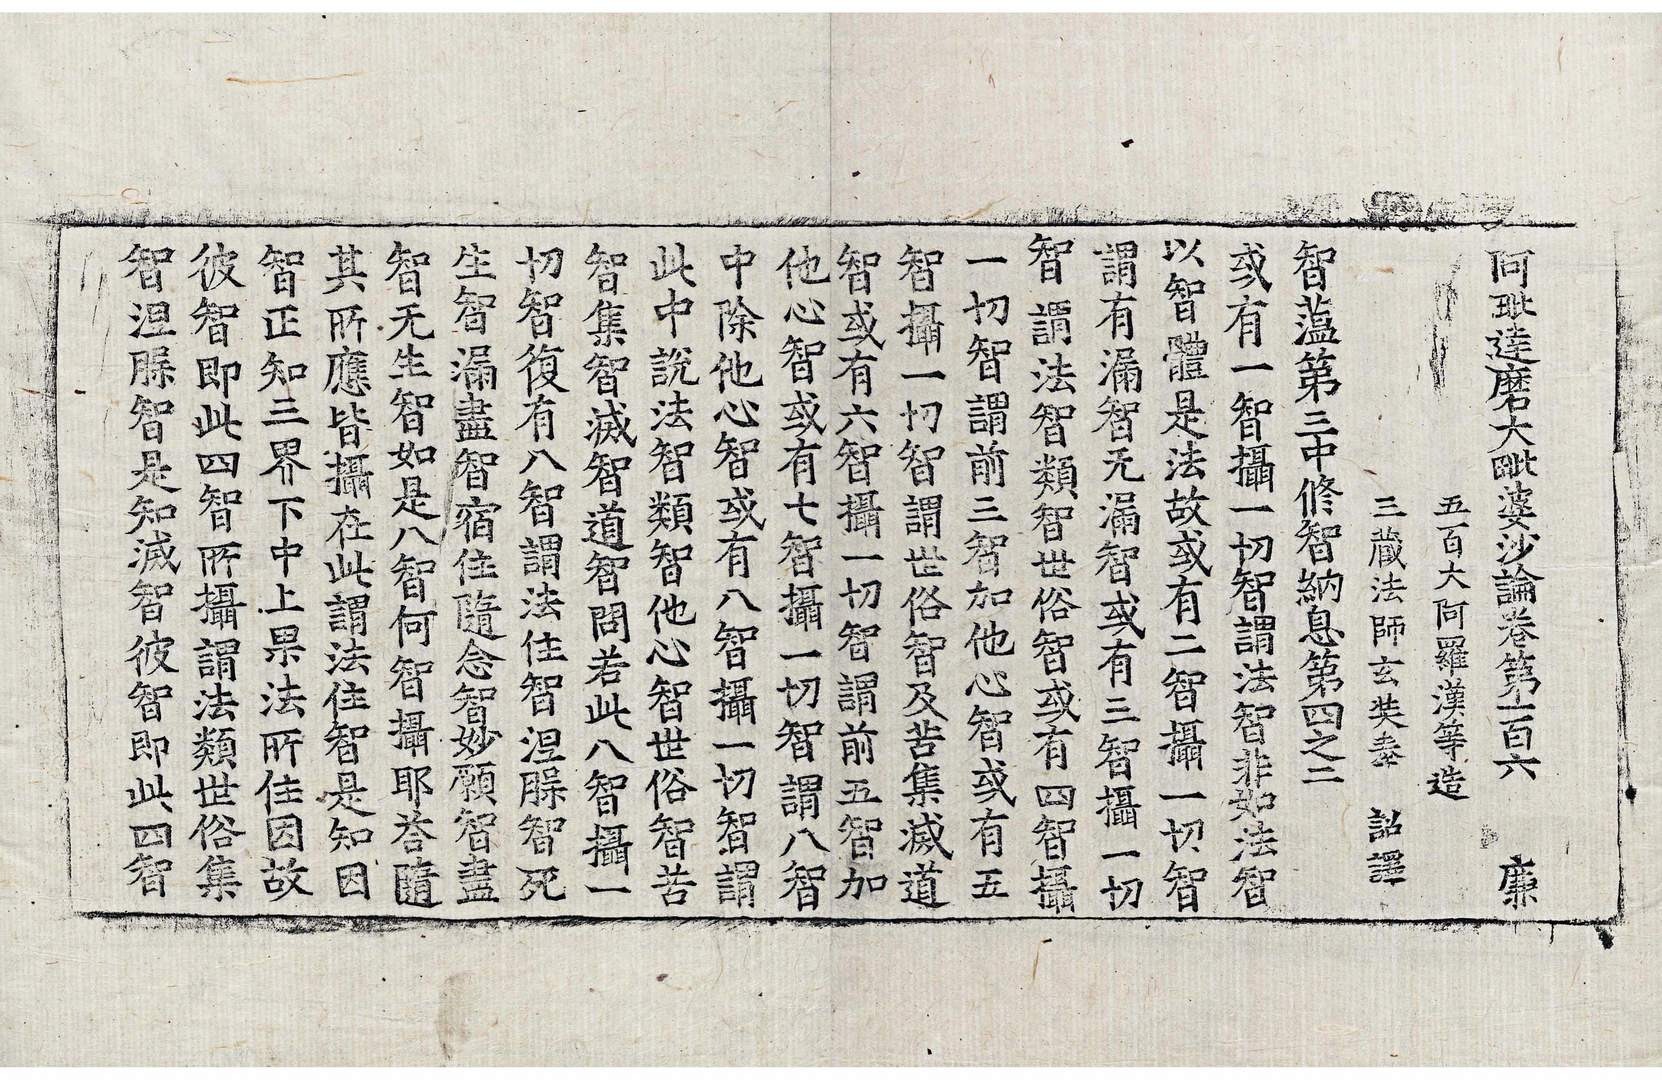 阿毗達磨大毗婆沙論卷第一百六 廉
五百大阿羅漢等造
三藏法師玄奘奉 詔譯
智蘊第三中修智納息第四之二
或有一智攝一切智謂法智非如法智
以智體是法故或有二智攝一切智
謂有漏智无漏智或有三智攝一切
智謂法智類智世俗智或有四智攝
一切智謂前三智加他心智或有五
智攝一切智謂世俗智及苦集滅道
智或有六智攝一切智謂前五智加
他心智或有七智攝一切智謂八智
中除他心智或有八智攝一切智謂
此中說法智類智他心智世俗智苦
智集智滅智道智問若此八智攝一
切智復有八智謂法住智涅槃智死
生智漏盡智宿住隨念智妙願智盡
智无生智如是八智何智攝耶荅隨
其所應皆攝在此謂法住智是知因
智正知三界下中上果法所住因故
彼智即此四智所攝謂法類世俗集
智涅槃智是知滅智彼智即此四智